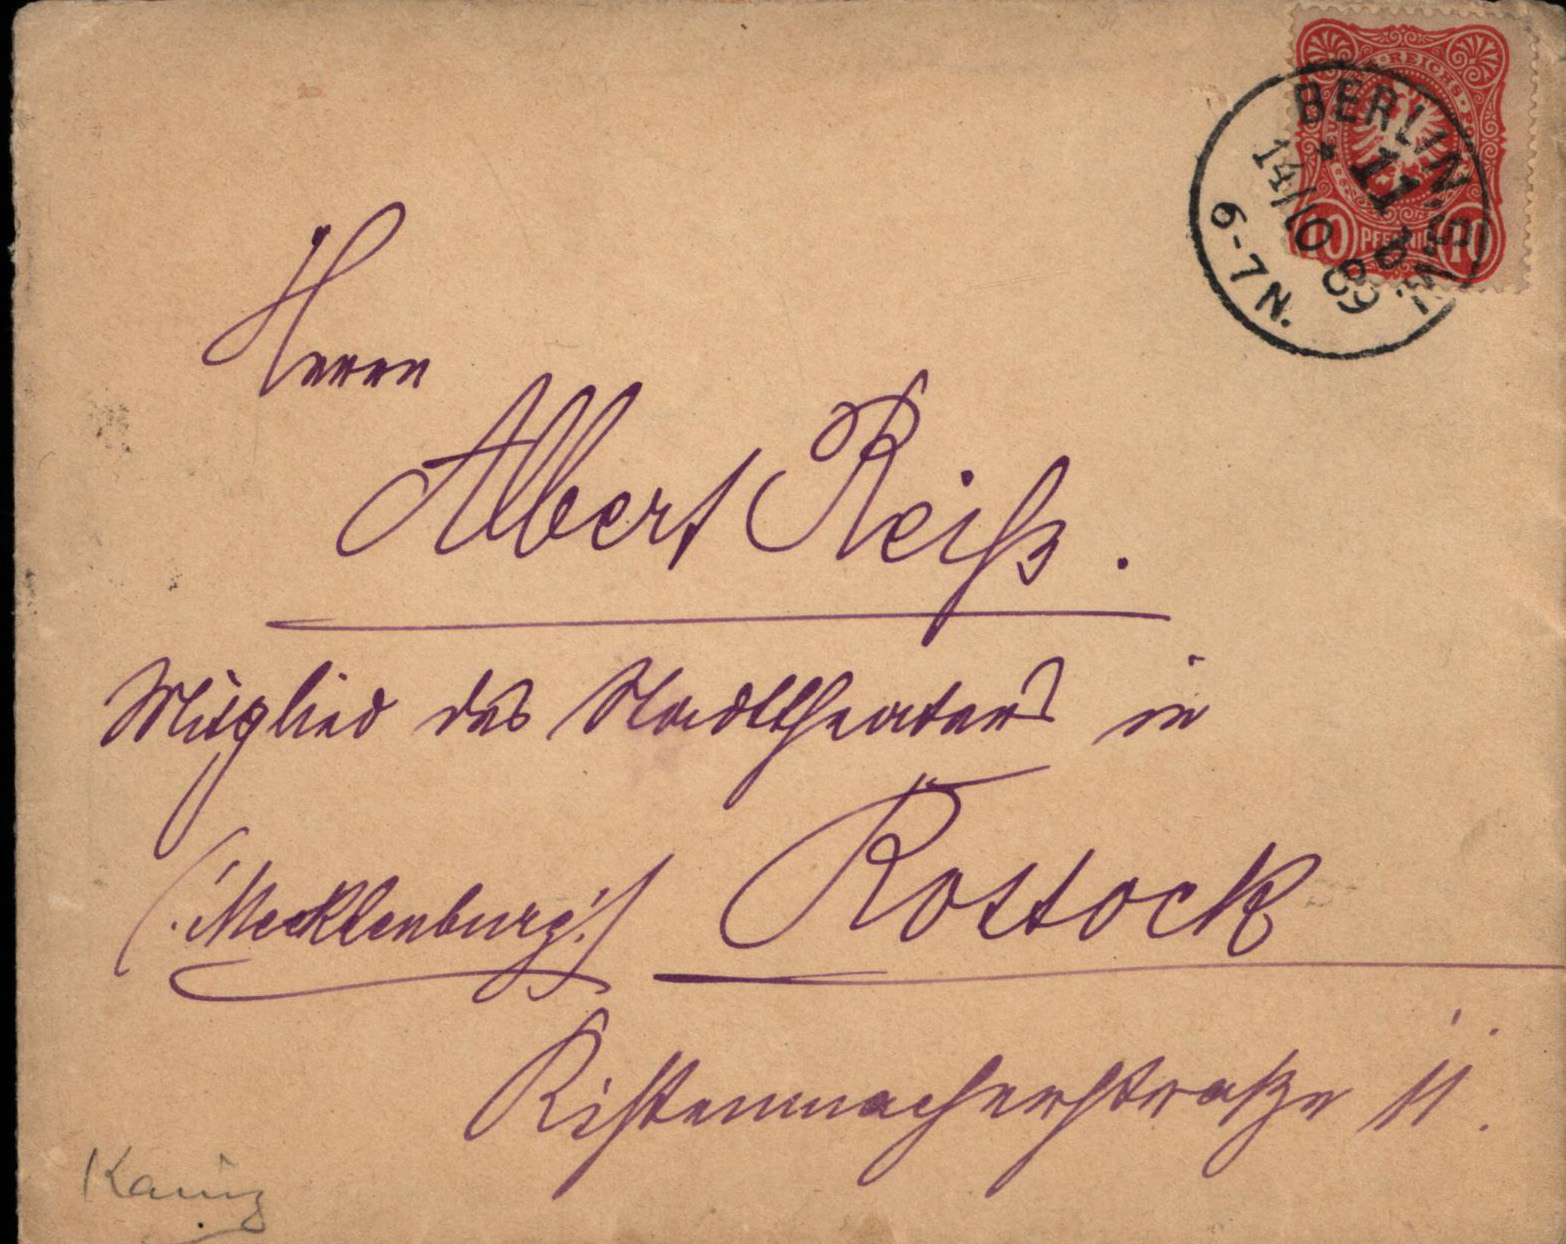 BERLIN, S.W.
* 11 b
14/10 89
6-7 N.
REICHS
10 PFENNIG 10
Herrn
Albert Reiß.
Mitglied des Stadttheaters in
(:Mecklenburg:) Rostock
Kistenmacherstraße 11.